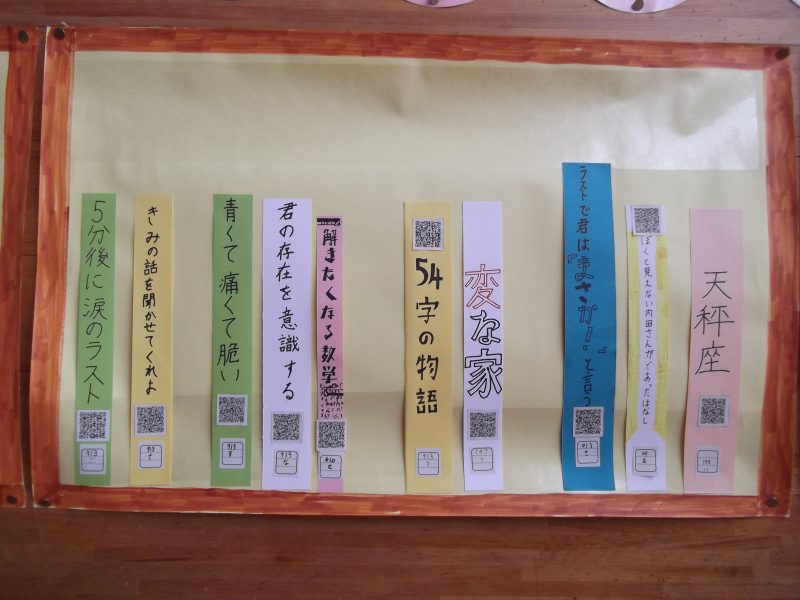 5分後に涙のラスト
913
きみの話を聞かせてくれよ
913
青くて痛くて脆い
913
す
君の存在を意識する
913
な
解きたくなる数学
410
54字の物語
913
変な家
ラストで君は「まさか!」と言う
913
ぼくと見えない内田さんがであったはなし
天秤座